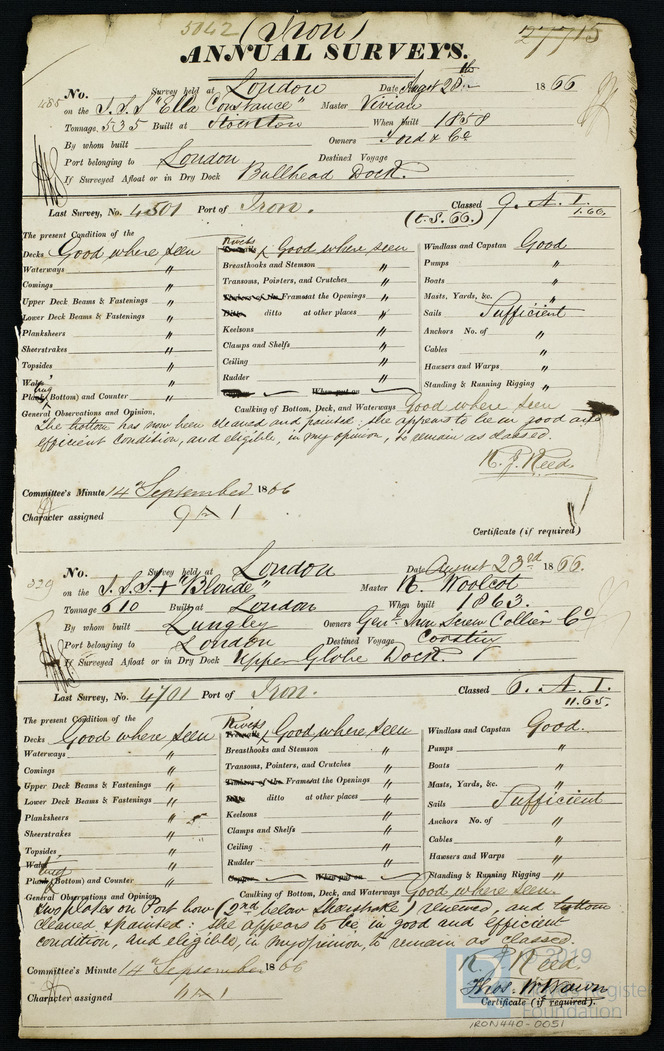 5042 (Iron) 27715
ANNUAL SURVEYS.
485 No. Survey held at London Date August 28th 1866
on the S.S.S "Ella Constance" Master Vivian
Tonnage 535 Built at Stockton When built 1858
By whom built Owners Ford & Co
Port belonging to London Destined Voyage
If Surveyed Afloat or in Dry Dock Bullhead Dock.
Last Survey, No. 4501 Port of Iron. Classed 9. A. 1.
(t.S. 66.) 1.66.
The present Condition of the
Decks Good where seen
Waterways "
Comings "
Upper Deck Beams & Fastenings "
Lower Deck Beams & Fastenings "
Planksheers "
Sheerstrakes "
Topsides "
Wales "
Plank (Bottom) and Counter "
Rivets
Treenails Good where seen
Breasthooks and Stemson "
Transoms, Pointers, and Crutches "
Timbers of the Frames at the Openings "
Ditto ditto at other places "
Keelsons "
Clamps and Shelfs "
Ceiling "
Rudder "
When put on
Windlass and Capstan Good
Pumps "
Boats "
Masts, Yards, &c. "
Sails Sufficient
Anchors No. of "
Cables "
Hawsers and Warps "
Standing & Running Rigging "
Caulking of Bottom, Deck, and Waterways Good where seen
General Observations and Opinion,
The bottom has now been cleaned and painted: she appears to be in good and
efficient condition, and eligible, in my opinion, to remain as classed.
R. J. Reed.
Committee's Minute 14th September 1866
Character assigned 9 A 1
Certificate (if required)
329 No. Survey held at London Date August 23rd 1866.
on the S.S.S + "Blonde" Master N. Woolcot
Tonnage 610 Built at London When built 1863.
By whom built Lungley Owners Genl. Iron Screw Collier Co
Port belonging to London Destined Voyage Coasting
If Surveyed Afloat or in Dry Dock Upper Globe Dock.
Last Survey, No. 4701 Port of Iron. Classed 6. A. 1.
11.65.
The present Condition of the
Decks Good where seen
Waterways "
Comings "
Upper Deck Beams & Fastenings "
Lower Deck Beams & Fastenings "
Planksheers "
Sheerstrakes "
Topsides "
Wales "
Plank (Bottom) and Counter "
Rivets
Treenails Good where seen
Breasthooks and Stemson "
Transoms, Pointers, and Crutches "
Timbers of the Frames at the Openings "
Ditto ditto at other places "
Keelsons "
Clamps and Shelfs "
Ceiling "
Rudder "
Copper When put on
Windlass and Capstan Good.
Pumps "
Boats "
Masts, Yards, &c. "
Sails Sufficient
Anchors No. of "
Cables "
Hawsers and Warps "
Standing & Running Rigging "
Caulking of Bottom, Deck, and Waterways Good where seen.
General Observations and Opinion,
two plates on Port bow (2nd below Sheerstrake) renewed, and bottom
cleaned & painted: she appears to be in good and efficient
condition, and eligible, in my opinion, to remain as classed.
R. J. Reed.
Committee's Minute 14th September 1866
Thos. W. Wawn
Character assigned 6 A 1
Certificate (if required).
© 2019
Register
Foundation
IRON440-0051